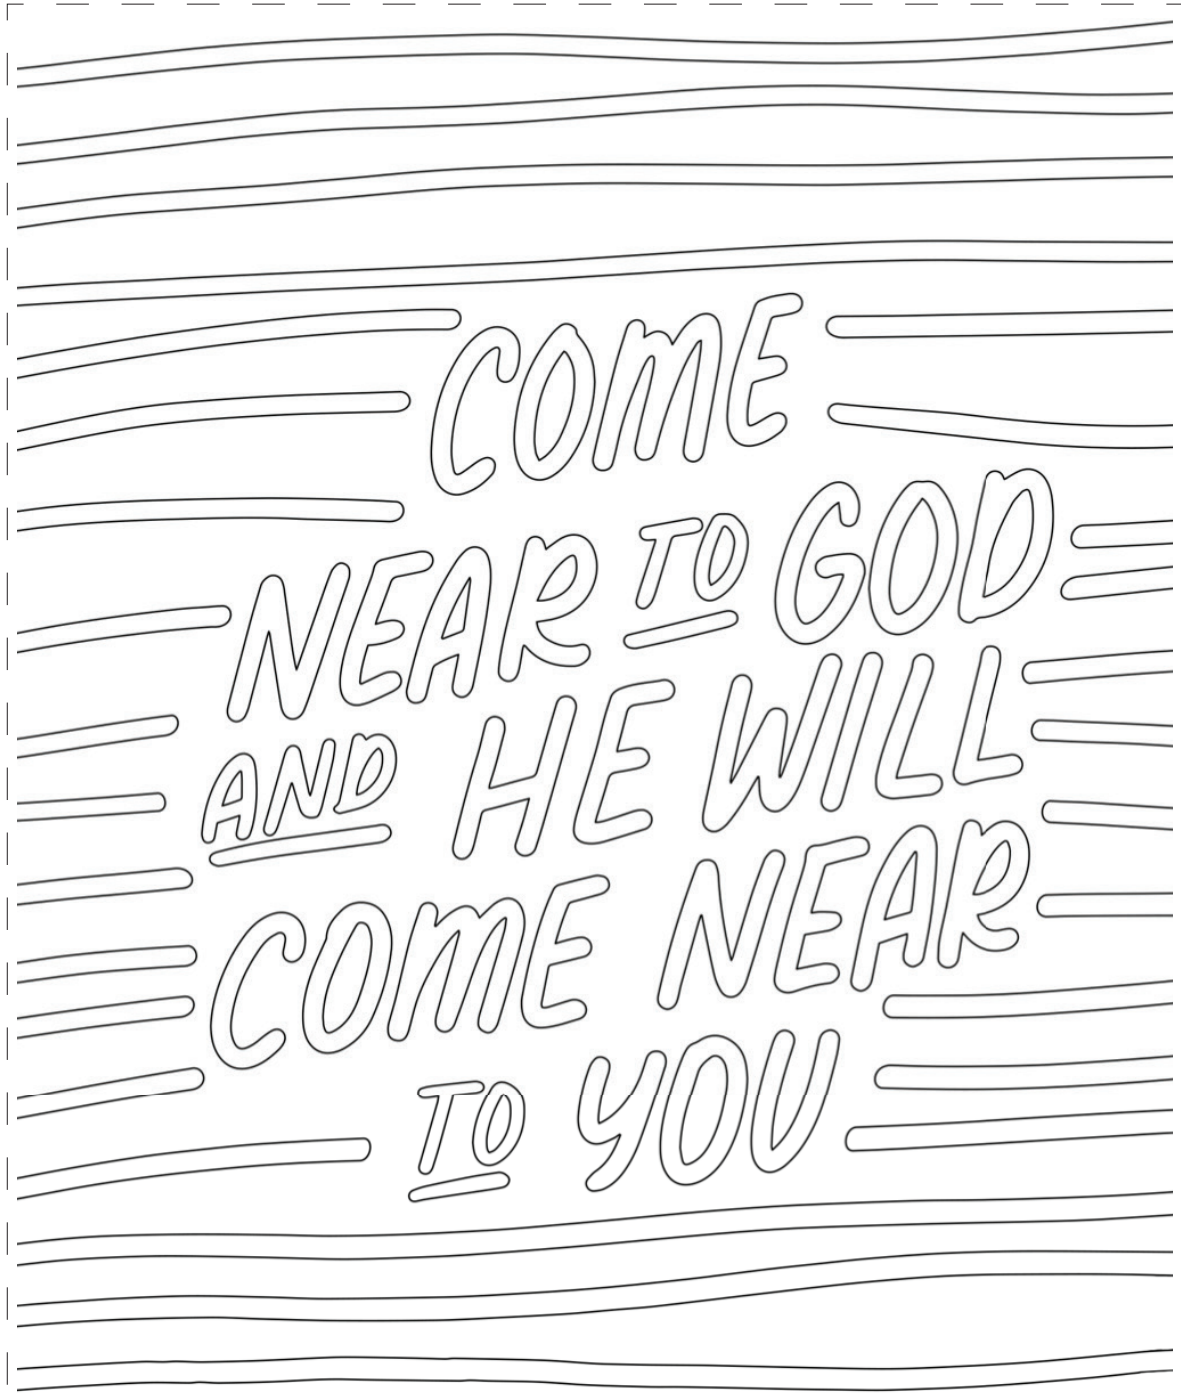 COME
NEAR TO GOD
AND HE WILL
COME NEAR
TO YOU